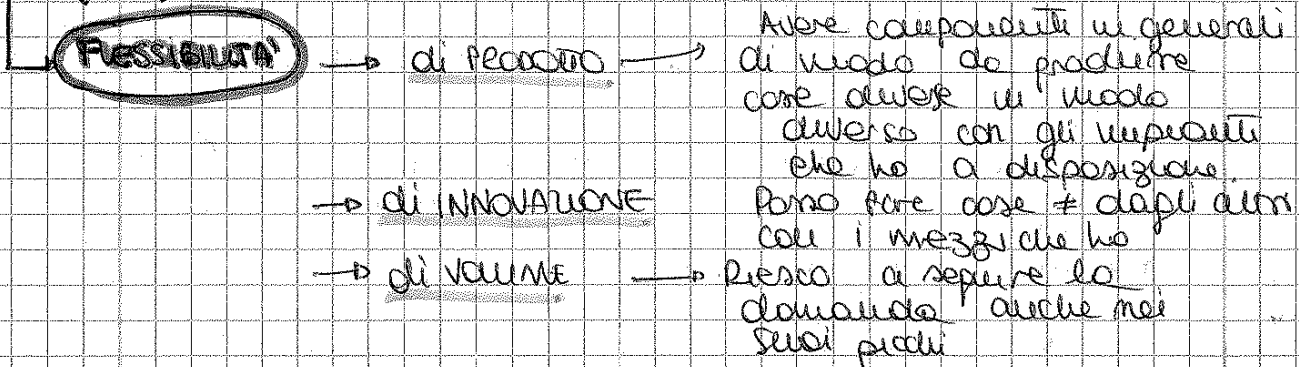 FLESSIBILITÀ → di PRODOTTO → Avere componenti in generali
di modo da produrre
cose diverse in modo
diverso con gli impianti
che ho a disposizione.
→ di INNOVAZIONE Posso fare cose ≠ dagli altri
con i mezzi che ho
→ di VOLUME → Riesco a seguire la
domanda anche nei
suoi picchi